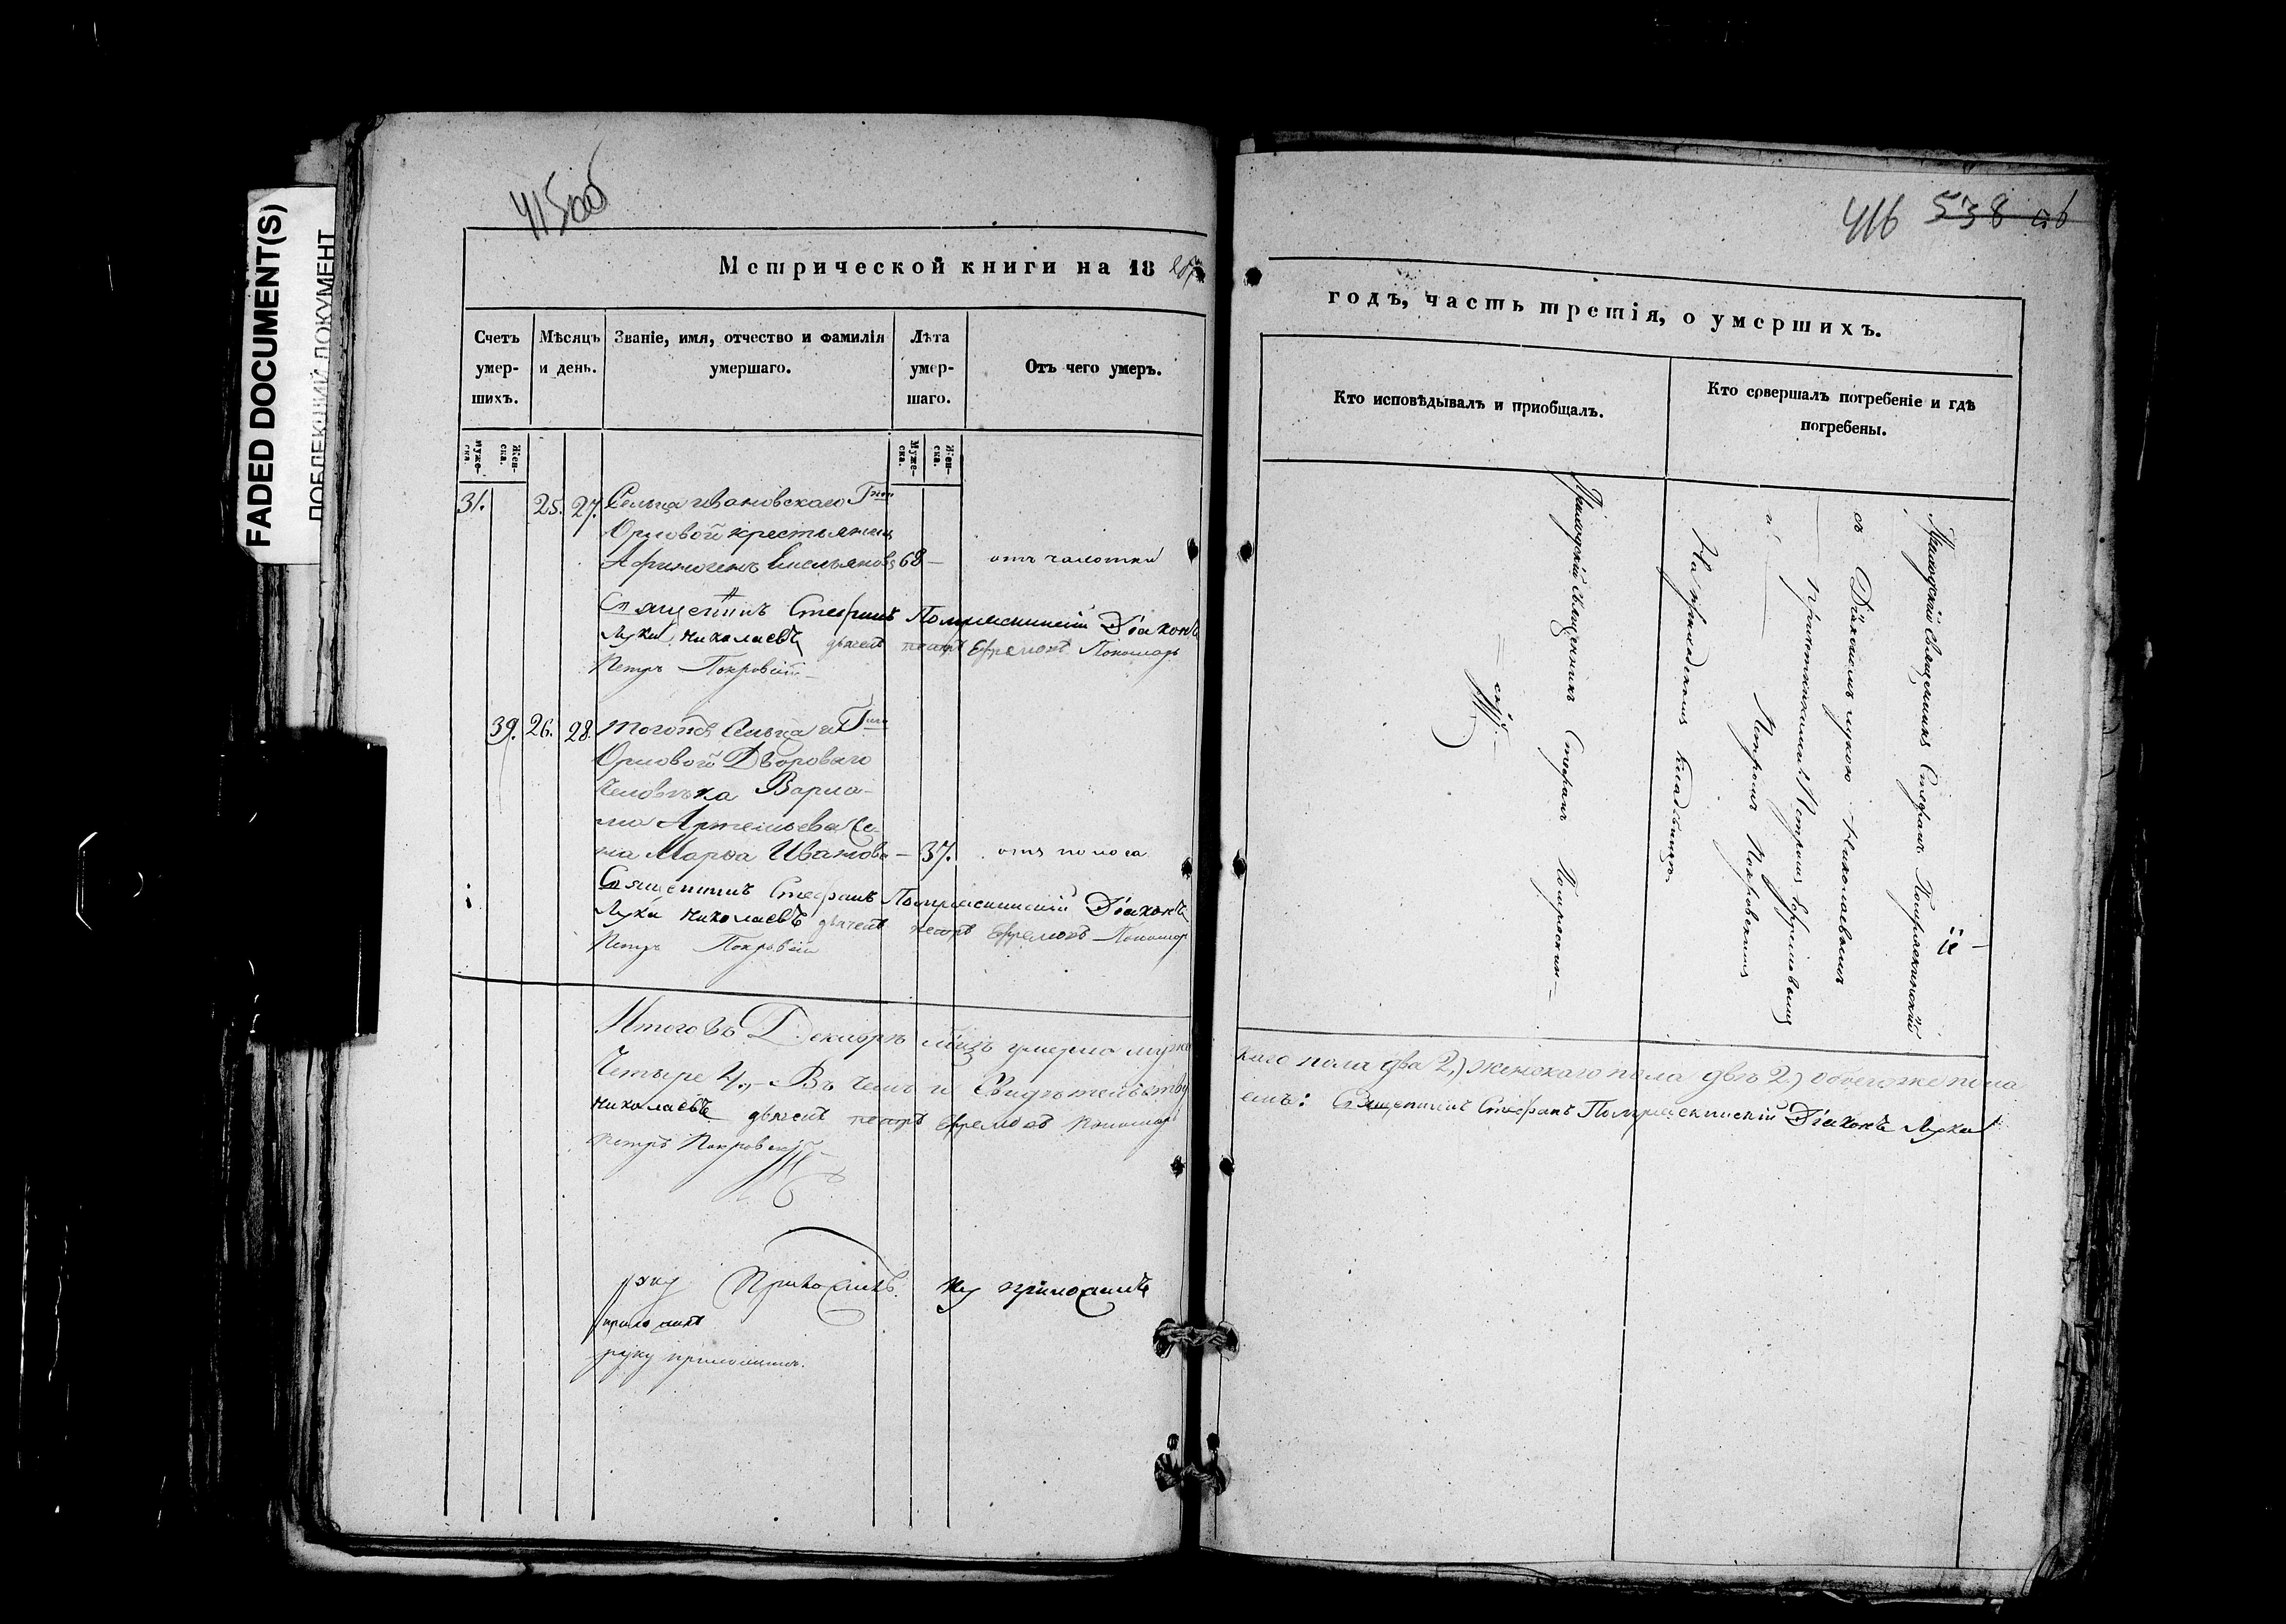 FADED DOCUMENT(S)
415 об
416 538 об
Метрической книги на 18
годъ, часть третія, о умершихъ.
Счетъ умер-шихъ.
Мѣсяцъ и день.
Званіе, имя, отчество и фамилія умершаго.
Лѣта умер-шаго.
Отъ чего умеръ.
Кто исповѣдывалъ и пріобщалъ.
Кто совершалъ погребеніе и гдѣ погребены.
муже-ска.
Жен-ска.
Муже-ска.
Жен-ска.
31. 25. 27. Сельца Ивановскаго Гжи
Орловой крестьянинъ
Афиногенъ Емельяновъ 68 — отъ чахотки
Священникъ Стефанъ Діаконъ
Лука Николаевъ дьячекъ петръ Ефремовъ Пономарь
Петръ Покровскій
39. 26. 28. Тогожъ Сельца и Гжи
Орловой Двороваго
Человѣка Варла-
ма Артемьева Же-
на Марѳа Иванова — 37. отъ поноса
Священникъ Стефанъ Діаконъ
Лука Николаевъ дьячекъ петръ Ефремовъ Пономарь
Петръ Покровскій
Приходскій Священникъ Стефанъ
Приходскій Священникъ Стефанъ
съ Діакономъ Лукою Николаевымъ
и причетниками Петромъ Ефремовымъ
и Петромъ Покровскимъ
На приходскомъ кладбищѣ.
Итого въ Декабрѣ мцѣ умерло муже
скаго пола два 2,) женскаго пола двѣ 2) обоего же пола
Четыре 4,— Въ чемъ и Свидѣтельству
емъ: Священникъ Стефанъ Діаконъ Лука
Николаевъ дьячекъ петръ Ефремовъ Пономарь
Петръ Покровскій
руку Приложилъ. ку приложилъ
приложилъ
руку приложилъ.